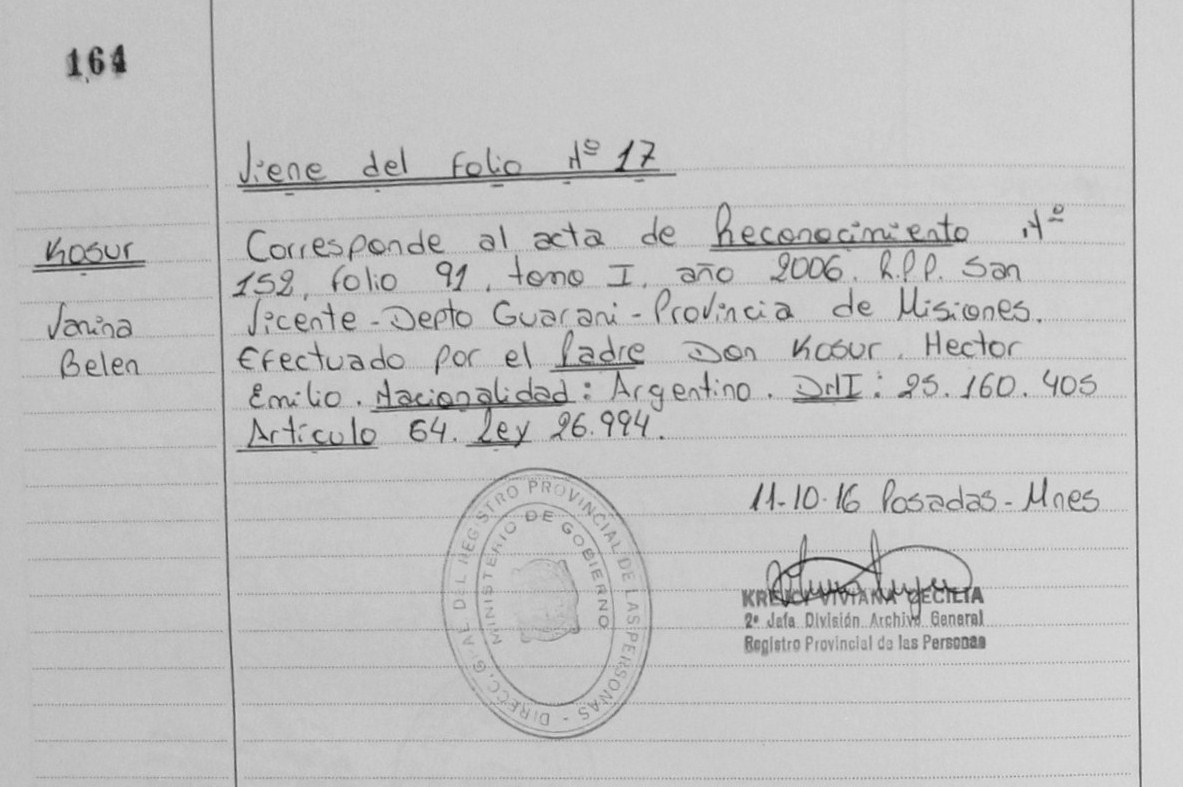 164
Viene del Folio Nº 17
Kosur
Janina
Belen
Corresponde al acta de Reconocimiento Nº
152, folio 91, tomo I, año 2006. R.P.P. San
Vicente - Depto Guarani - Provincia de Misiones.
Efectuado por el Padre Don Kosur, Hector
Emilio. Nacionalidad: Argentino. DNI: 25.160.405
Articulo 64. Ley 26.994.
11-10-16 Posadas - Mnes
VIVIANA CECILIA
2º Jefa División Archivo General
Registro Provincial de las Personas
DIREC. GRAL DEL REGISTRO PROVINCIAL DE LAS PERSONAS -
MINISTERIO DE GOBIERNO